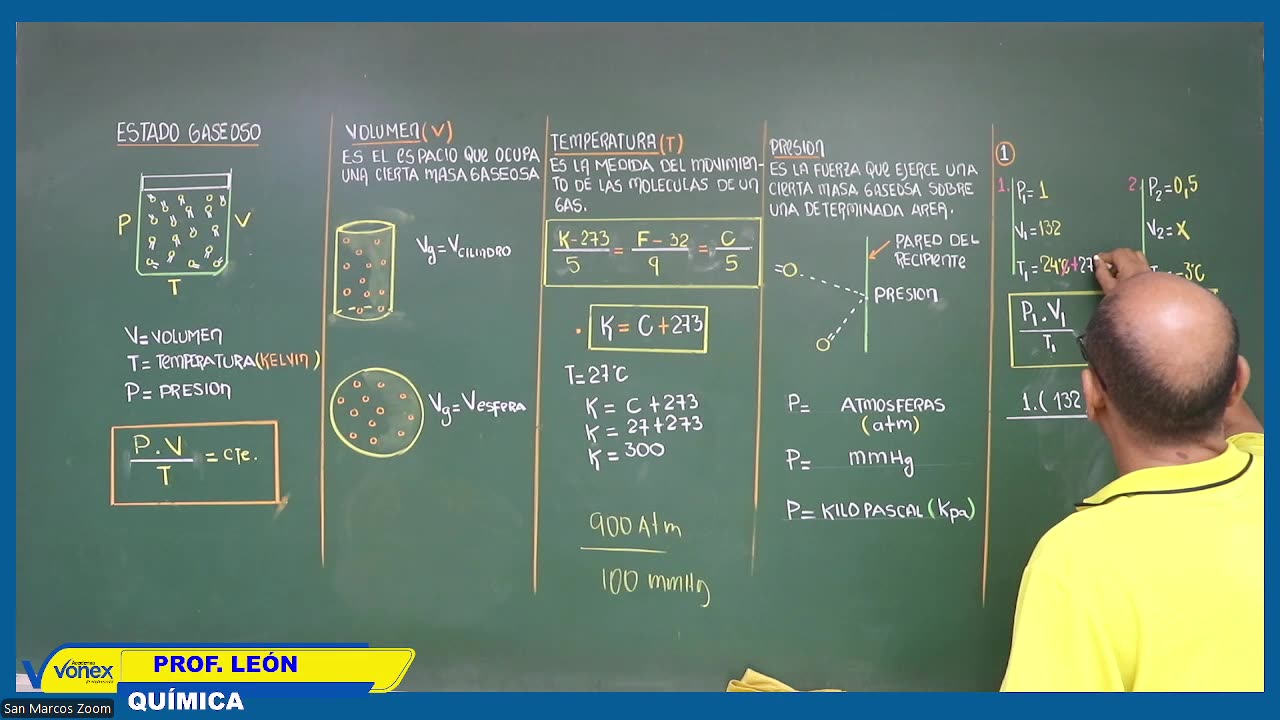 ESTADO GASEOSO
P
V
T
V= VOLUMEN
T= TEMPERATURA (KELVIN)
P= PRESION
P.V
T
= cTe.
VOLUMEN (V)
ES EL ESPACIO QUE OCUPA
UNA CIERTA MASA GASEOSA
Vg = VCILINDRO
Vg = VESFERA
TEMPERATURA (T)
ES LA MEDIDA DEL MOVIMIEN-
TO DE LAS MOLECULAS DE UN
GAS.
K-273 = F-32 = C
5 9 5
K = C +273
T= 27°C
K = C +273
K = 27+273
K = 300
900 Atm
100 mmHg
PRESION
ES LA FUERZA QUE EJERCE UNA
CIERTA MASA GASEOSA SOBRE
UNA DETERMINADA AREA.
PARED DEL
RECIPIENTE
PRESION
P= ATMOSFERAS
(atm)
P= mmHg
P= KILO PASCAL (Kpa)
1
1. P1= 1
V1= 132
T1= 24°C+27
2 P2= 0,5
V2= X
-3°C
P1.V1
T1
1.(132
Academia
VONEX
PROF. LEÓN
QUÍMICA
San Marcos Zoom